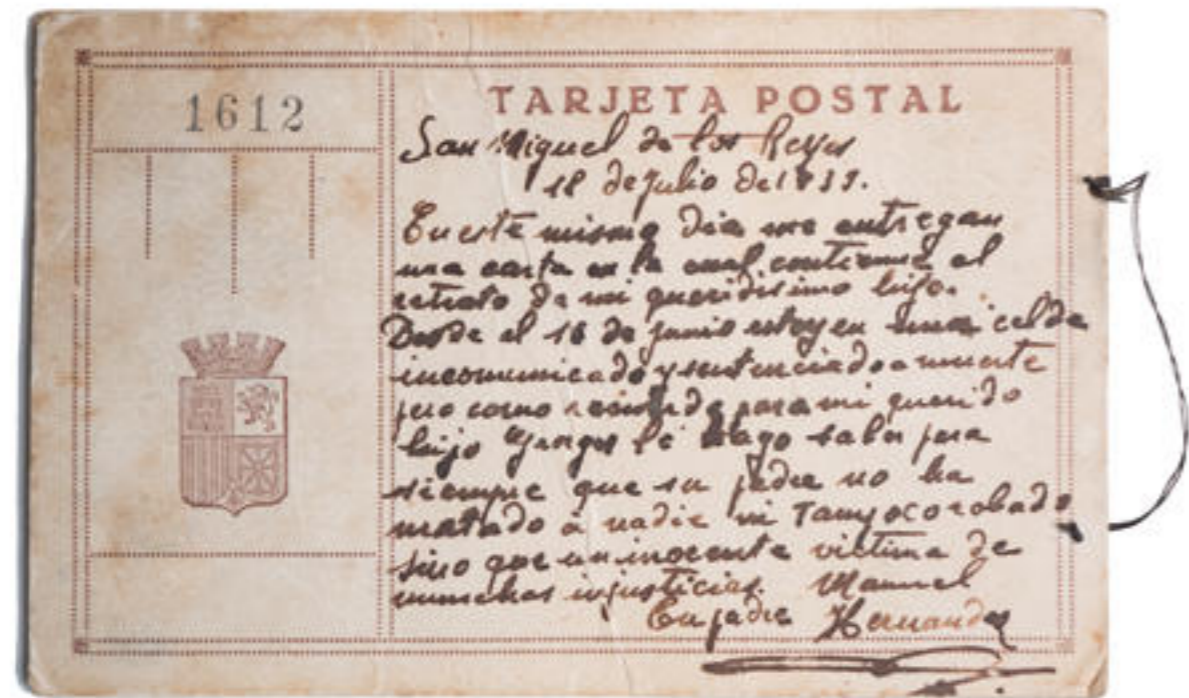 1612
TARJETA POSTAL
San Miguel de los Reyes
18 de julio de 1939.
En este mismo dia me entregan
una carta en la cual contiene el
retrato de mi queridisimo hijo.
Desde el 16 de junio estoy en una celda
incomunicado y sentenciado a muerte
pero como recuerdo para mi querido
hijo le hago saber para
siempre que su padre no ha
matado a nadie ni tampoco robado
sino que un inocente victima de
munchas injusticias. Manuel
Tu padre Hernandez